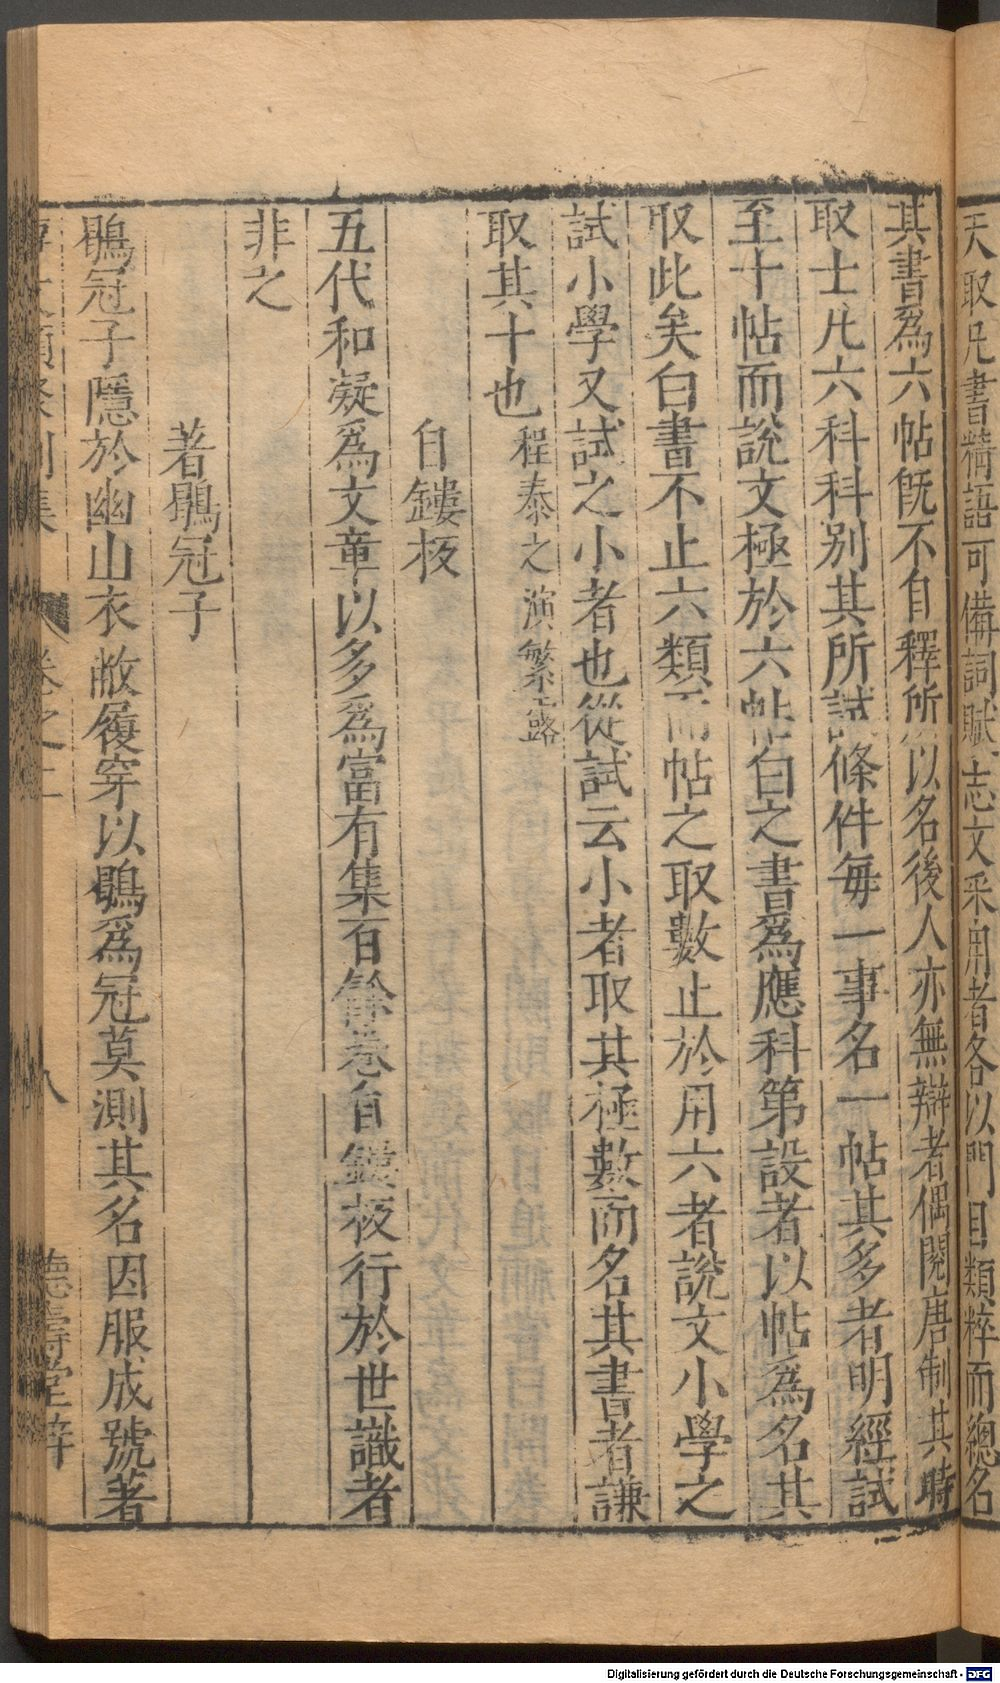 天取凡書精語可備詞賦志文采用者各以門目類粹而總名
其書爲六帖旣不自釋所以名後人亦無辯者偶閱唐制其時
取士凡六科科别其所試條件每一事名一帖其多者明經試
至十帖而說文極於六帖白之書爲應科第設者以帖爲名其
取此矣白書不止六類而帖之取數止於用六者說文小學之
試小學又試之小者也從試云小者取其極數而名其書者謙
取其十也 程泰之演繁露
自鏤板
五代和凝爲文章以多爲富有集百餘卷自鏤板行於世識者
非之
著鶡冠子
鶡冠子隱於幽山衣敝履穿以鶡爲冠莫測其名因服成號著
卷之二
八
德壽堂梓
Digitalisierung gefördert durch die Deutsche Forschungsgemeinschaft - DFG